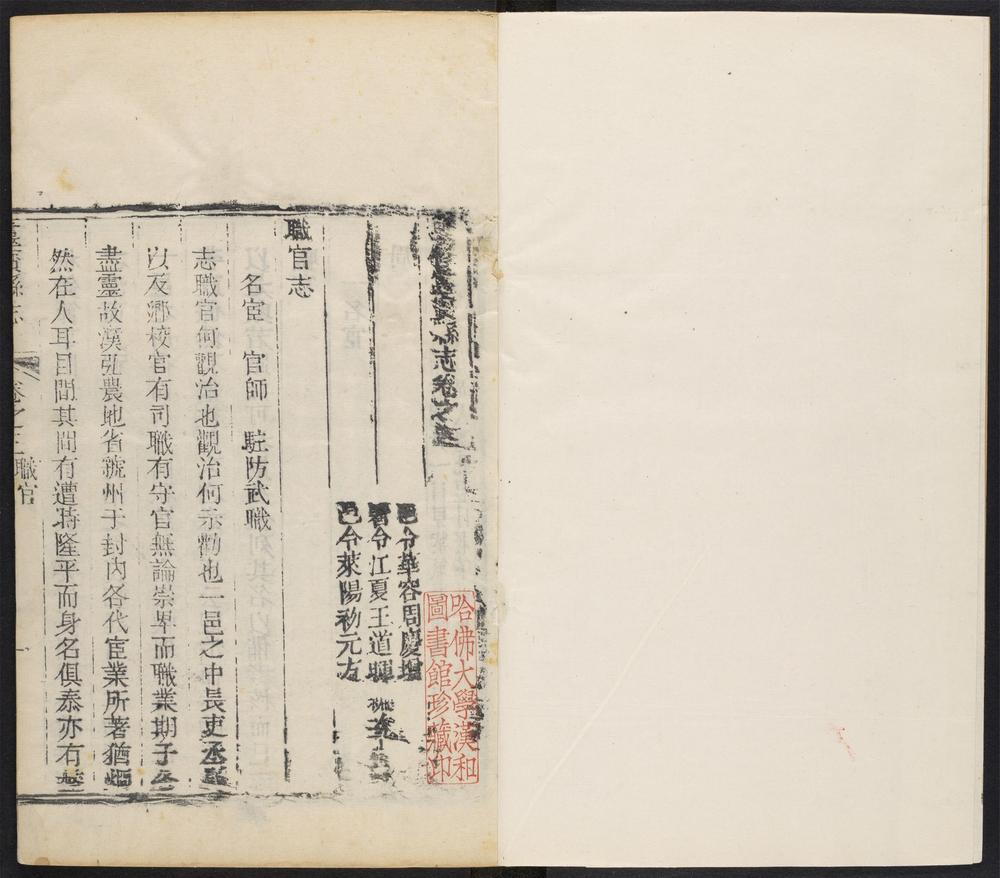 靈寶縣志卷之
邑令華容周慶增
署令江夏王道暉
邑令萊陽初元方
職官志
名宦 官師 駐防武職
志職官何觀治也觀治何示勸也一邑之中長吏丞
以及鄉校官有司職有守官無論崇卑而職業期于
盡靈故漢弘農地省虢州于封內各代宦業所著猶
然在人耳目間其間有遭時隆平而身名俱泰亦有
靈寶縣志 卷之三 職官 一
哈佛大學漢和
圖書館珍藏印